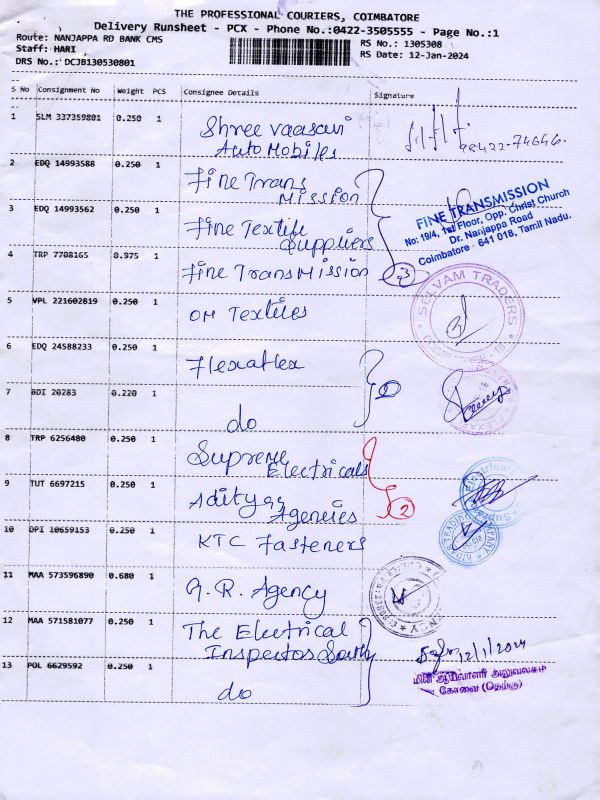 THE PROFESSIONAL COURIERS, COIMBATORE
Delivery Runsheet - PCX - Phone No.:0422-3505555 - Page No.:1
Route: NANJAPPA RD BANK CMS
RS No.: 1305308
Staff: HARI
RS Date: 12-Jan-2024
DRS No.: DCJB130530801
S No Consignment No Weight PCS Consignee Details Signature
1 SLM 337359801 0.250 1 Shree Vaasavi
Auto Mobiles
98422-74646.
2 EDQ 14993588 0.250 1 Fine Trans
Mission
3 EDQ 14993562 0.250 1 Fine Textile
Suppliers
FINE TRANSMISSION
No: 19/4, 1st Floor, Opp. Christ Church
Dr. Nanjappa Road
Coimbatore - 641 018, Tamil Nadu.
4 TRP 7708165 0.975 1 Fine Transmission
3
5 VPL 221602819 0.250 1 OM Textiles
SELVAM TRADERS
6 EDQ 24588233 0.250 1 Flexaflex
7 BDI 20283 0.220 1 do
2
8 TRP 6256480 0.250 1 Supreme
Electricals
9 TUT 6697215 0.250 1 Adityaa
Agencies
2
10 DPI 10659153 0.250 1 KTC Fasteners
11 MAA 573596890 0.680 1 G.R. Agency
12 MAA 571581077 0.250 1 The Electrical
Inspector South
12/1/2024
13 POL 6629592 0.250 1 do
மின் ஆய்வாளர் அலுவலகம்
கோவை (தெற்கு)